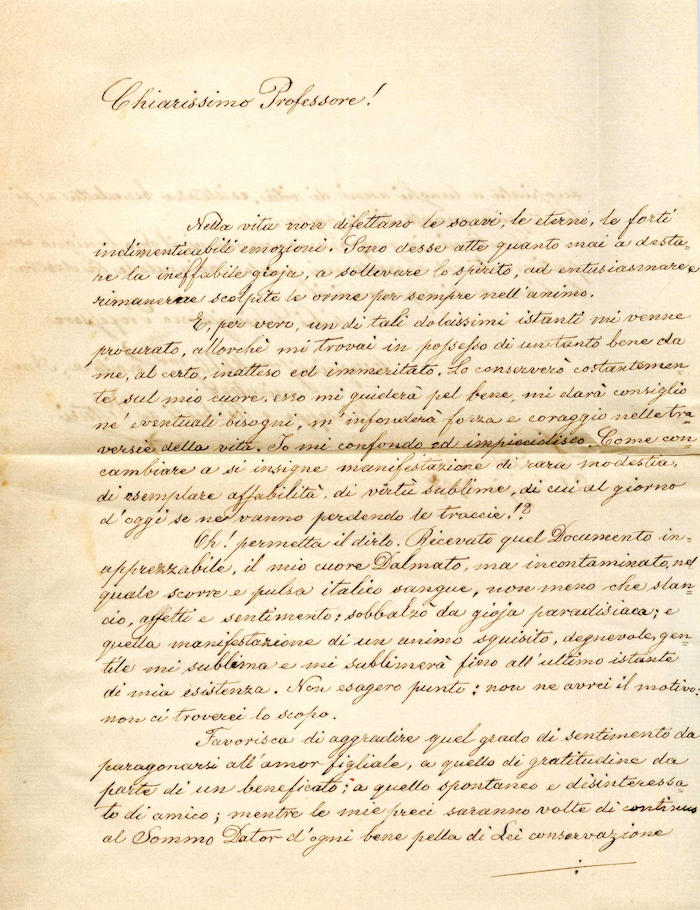 Chiarissimo Professore!
Nella vita non difettano le soavi, le eterne, le forti
indimenticabili emozioni. Sono desse atte quanto mai a desta=
re la ineffabile gioja, a sollevare lo spirito, ad entusiasmare e
rimanerne scolpite le orme per sempre nell'animo.
E, per vero, un di tali dolcissimi istanti mi venne
procurato, allorchè mi trovai in possesso di un tanto bene da
me, al certo, inatteso ed immeritato. Lo conserverò costantemen=
te sul mio cuore, esso mi guiderà pel bene, mi darà consiglio
ne' eventuali bisogni, m'infonderà forza e coraggio nelle tra=
versie della vita. Io mi confondo ed impicciolisco. Come con=
cambiare a sì insigne manifestazione di rara modestia,
di esemplare affabilità, di virtù sublime, di cui al giorno
d'oggi se ne vanno perdendo le traccie!?
Oh! permetta il dirlo. Ricevuto quel Documento in=
apprezzabile, il mio cuore Dalmato, ma incontaminato, nel
quale scorre e pulsa italico sangue, non meno che slan=
cio, affetti e sentimento; sobbalzò da gioja paradisiaca; e
quella manifestazione di un animo squisito, degnevole, gen=
tile mi sublima e mi sublimerà fino all'ultimo istante
di mia esistenza. Non esagero punto: non ne avrei il motivo:
non ci troverei lo scopo.
Favorisca di aggradire quel grado di sentimento da
paragonarsi all'amor figliale, a quello di gratitudine da
parte di un beneficato; a quello spontaneo e disinteressa=
to di amico; mentre le mie preci saranno volte di continuo
al Sommo Dator d'ogni bene pella di Lei conservazione